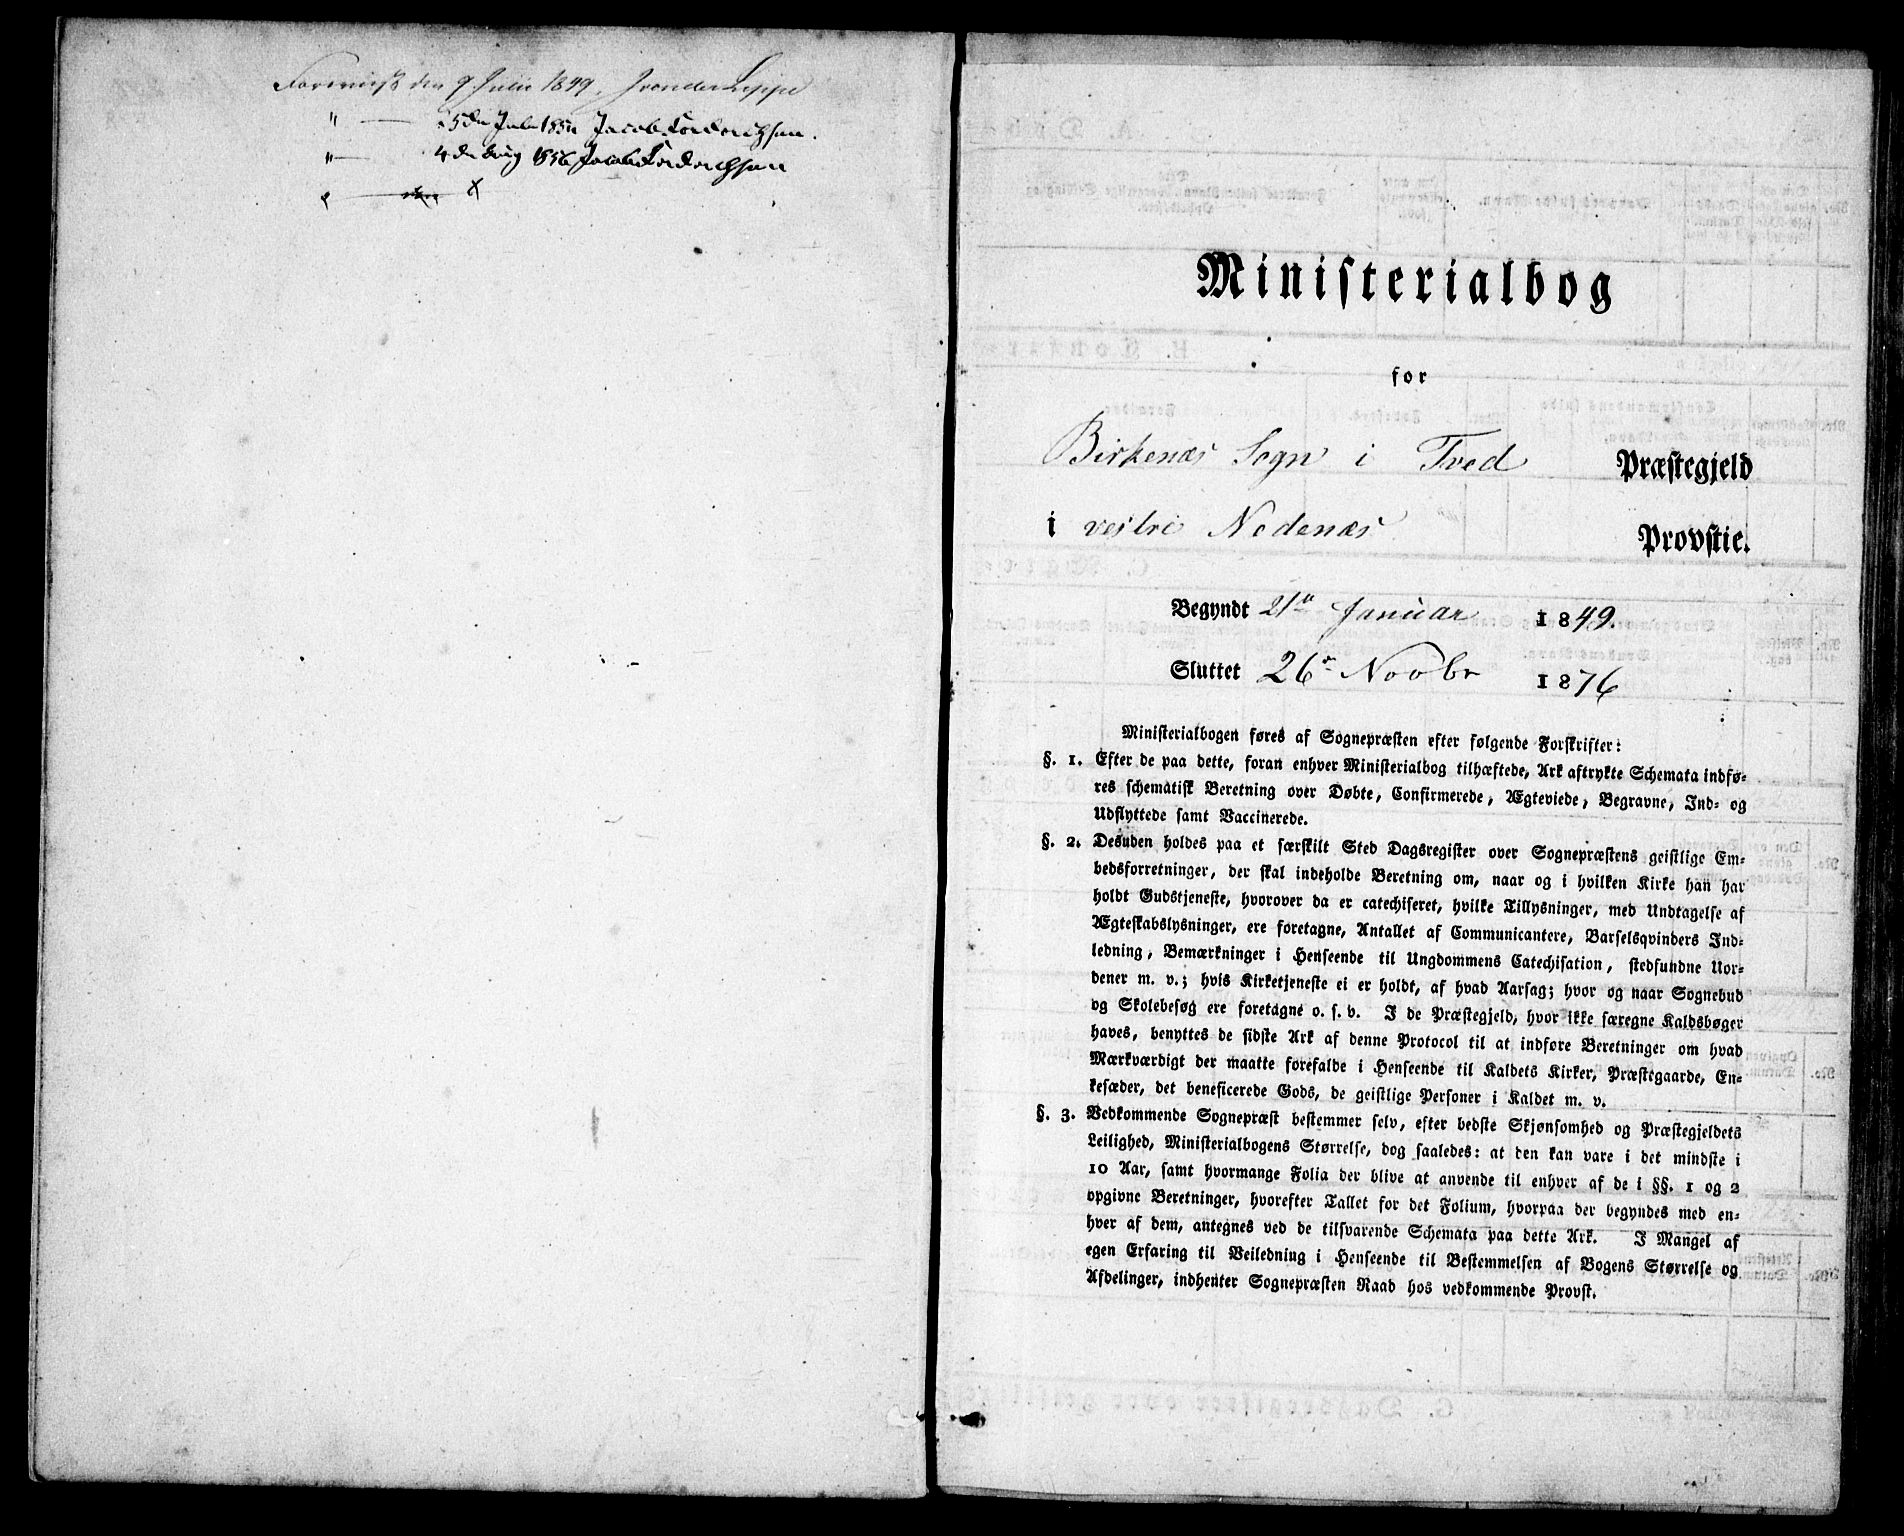 Foreviist den 9 Julii 1849, J von der Lippe
" — 5de Juli 185 Jacob
" — 4de Aug 1856 Jacob
Ministerialbog
for
Birkenæs Sogn i Tved Præstegjeld
i vestre Nedenæs Provstie.
Begyndt 21de Januar 1849.
Sluttet 26de Novbr 1876
Ministerialbogen føres af Sognepræsten efter følgende Forskrifter:
§. 1. Efter de paa dette, foran enhver Ministerialbog tilhæftede, Ark aftrykte Schemata indfø-
res schematisk Beretning over Døbte, Confirmerede, Ægteviede, Begravne, Ind- og
Udflyttede samt Vaccinerede.
§. 2. Desuden holdes paa et særskilt Sted Dagsregister over Sognepræstens geistlige Em-
bedsforretninger, der skal indeholde Beretning om, naar og i hvilken Kirke han har
holdt Gudstjeneste, hvorover da er catechiseret, hvilke Tillysninger, med Undtagelse af
Ægteskabslysninger, ere foretagne, Antallet af Communicantere, Barselsqvinders Ind-
ledning, Bemærkninger i Henseende til Ungdommens Catechisation, stedfundne Uor-
dener m. v.; hvis Kirketjeneste ei er holdt, af hvad Aarsag; hvor og naar Sognebud
og Skolebesøg ere foretagne o. s. v. I de Præstegjeld, hvor ikke særegne Kaldsbøger
haves, benyttes de sidste Ark af denne Protocol til at indføre Beretninger om hvad
Mærkværdigt der maatte forefalde i Henseende til Kaldets Kirker, Præstegaarde, En-
kesæder, det beneficerede Gods, de geistlige Personer i Kaldet m. v.
§. 3. Vedkommende Sognepræst bestemmer selv, efter bedste Skjønsomhed og Præstegjeldets
Leilighed, Ministerialbogens Størrelse, dog saaledes: at den kan vare i det mindste i
10 Aar, samt hvormange Folia der blive at anvende til enhver af de i §§. 1 og 2
opgivne Beretninger, hvorefter Tallet for det Folium, hvorpaa der begyndes med en-
hver af dem, antegnes ved de tilsvarende Schemata paa dette Ark. I Mangel af
egen Erfaring til Veiledning i Henseende til Bestemmelsen af Bogens Størrelse og
Afdelinger, indhenter Sognepræsten Raad hos vedkommende Provst.